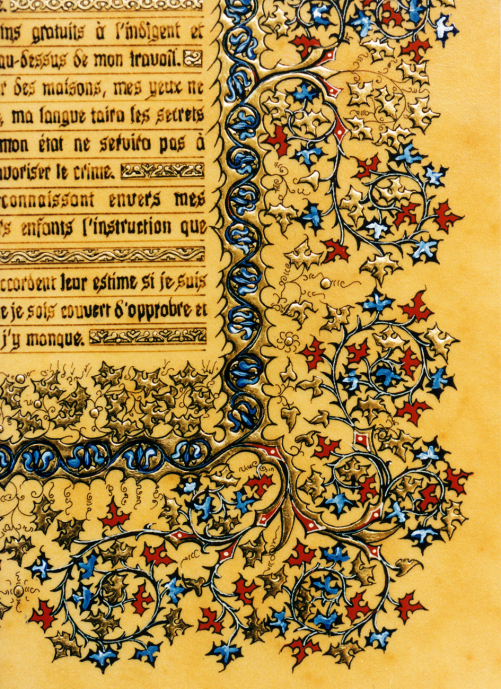 ins gratuits à l'indigent et
u-dessus de mon travail.
r des maisons, mes yeux ne
, ma langue taira les secrets
mon état ne servira pas à
avoriser le crime.
connaissant envers mes
rs enfants l'instruction que
ccordent leur estime si je suis
e je sois couvert d'opprobre et
j'y manque.